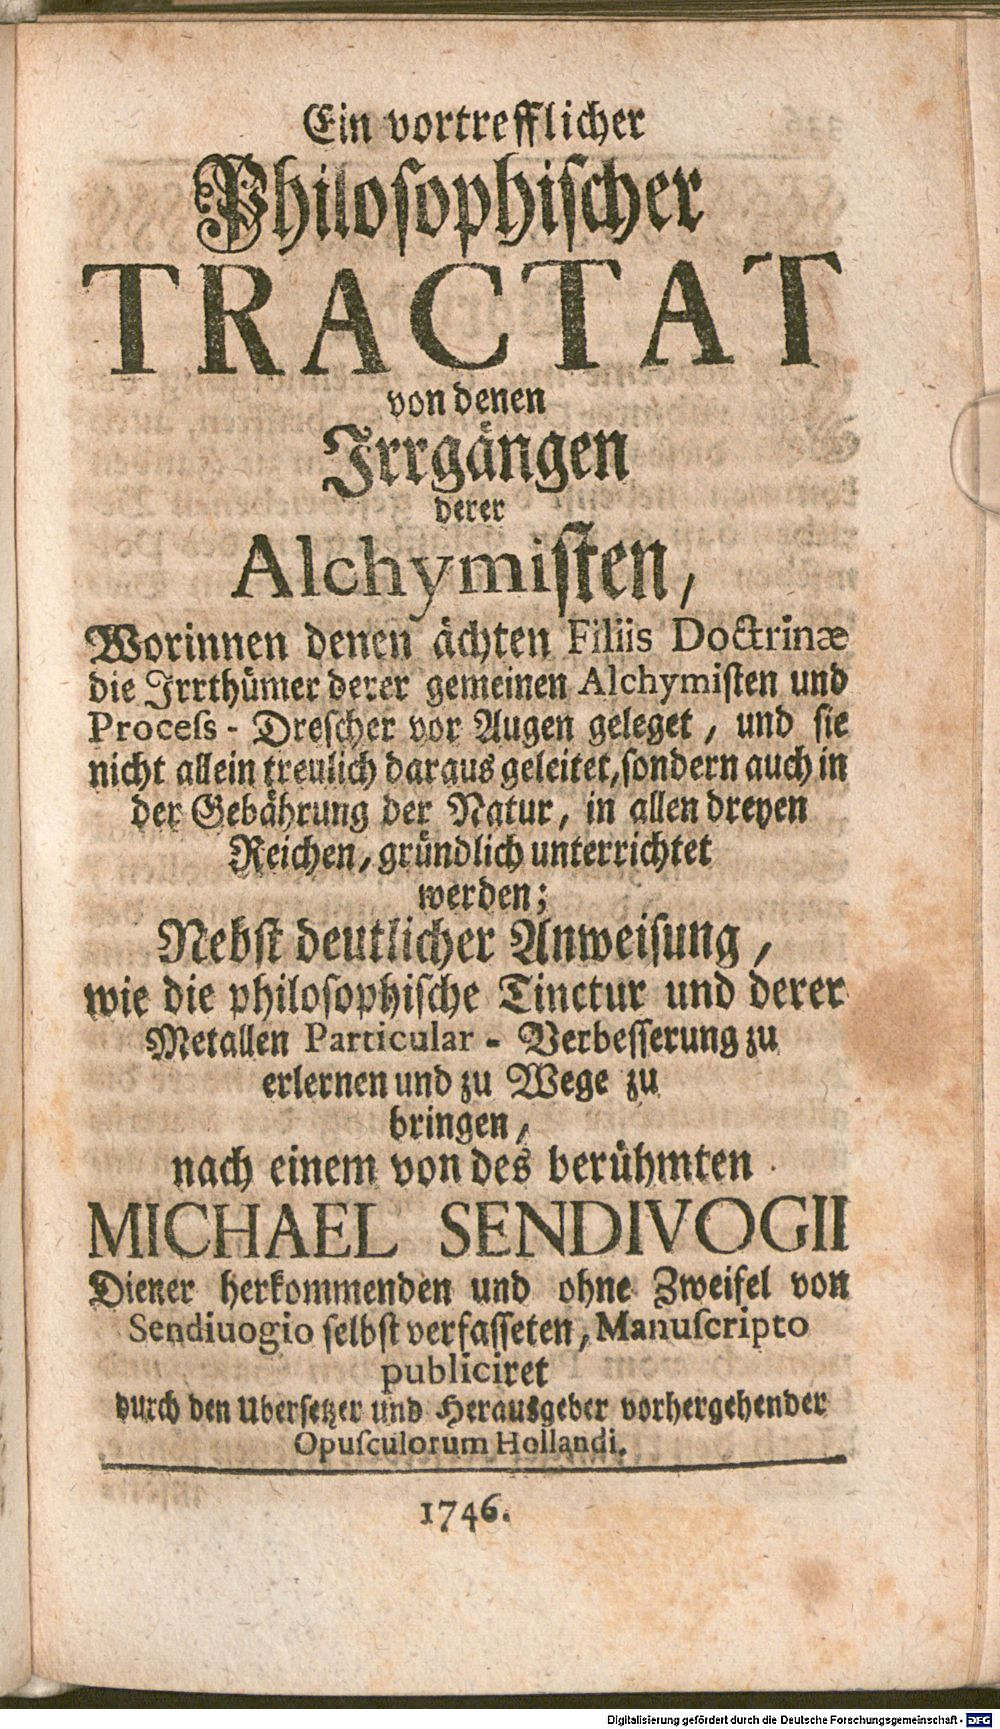 Ein vortrefflicher
Philosophischer
TRACTAT
von denen
Irrgängen
derer
Alchymisten,
Worinnen denen ächten Filiis Doctrinæ
die Irrthümer derer gemeinen Alchymisten und
Proceſs - Drescher vor Augen geleget, und sie
nicht allein treulich daraus geleitet, sondern auch in
der Gebährung der Natur, in allen dreyen
Reichen, gründlich unterrichtet
werden;
Nebst deutlicher Anweisung,
wie die philosophische Tinctur und derer
Metallen Particular - Verbesserung zu
erlernen und zu Wege zu
bringen,
nach einem von des berühmten
MICHAEL SENDIVOGII
Diener herkommenden und ohne Zweifel von
Sendiuogio selbst verfasseten, Manuſcripto
publiciret
durch den Ubersetzer und Herausgeber vorhergehender
Opuſculorum Hollandi.
1746.
Digitalisierung gefördert durch die Deutsche Forschungsgemeinschaft - DFG